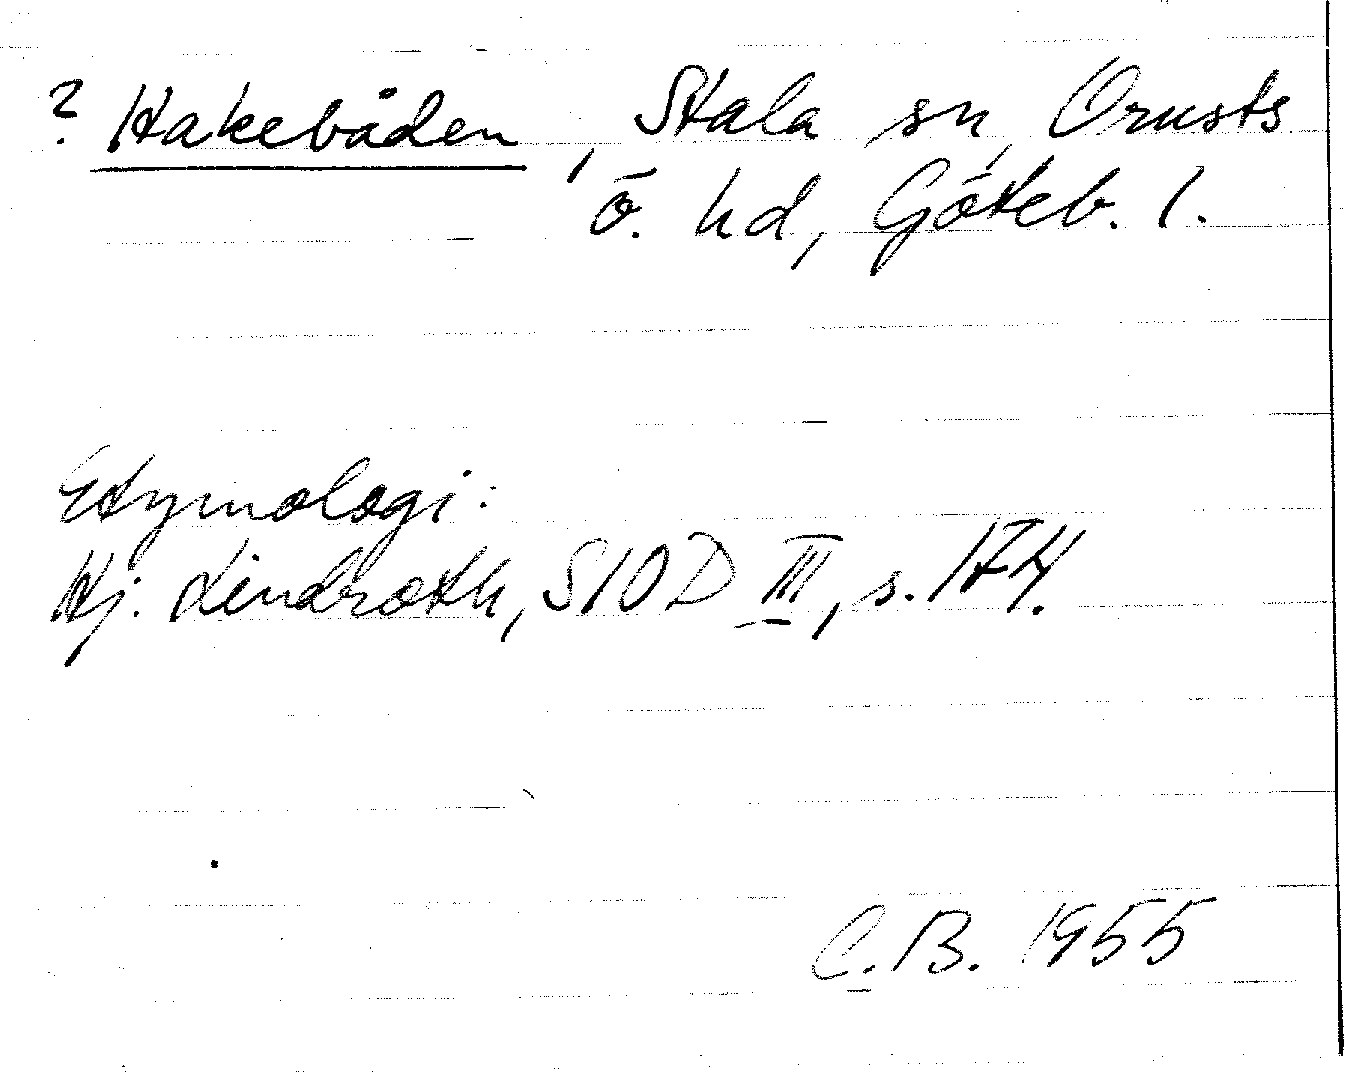 ? Hakebåden, Stala sn, Orusts
ö. hd, Göteb. l.
Etymologi:
Hj. Lindroth, SIOD III, s. 174.
C.B. 1955